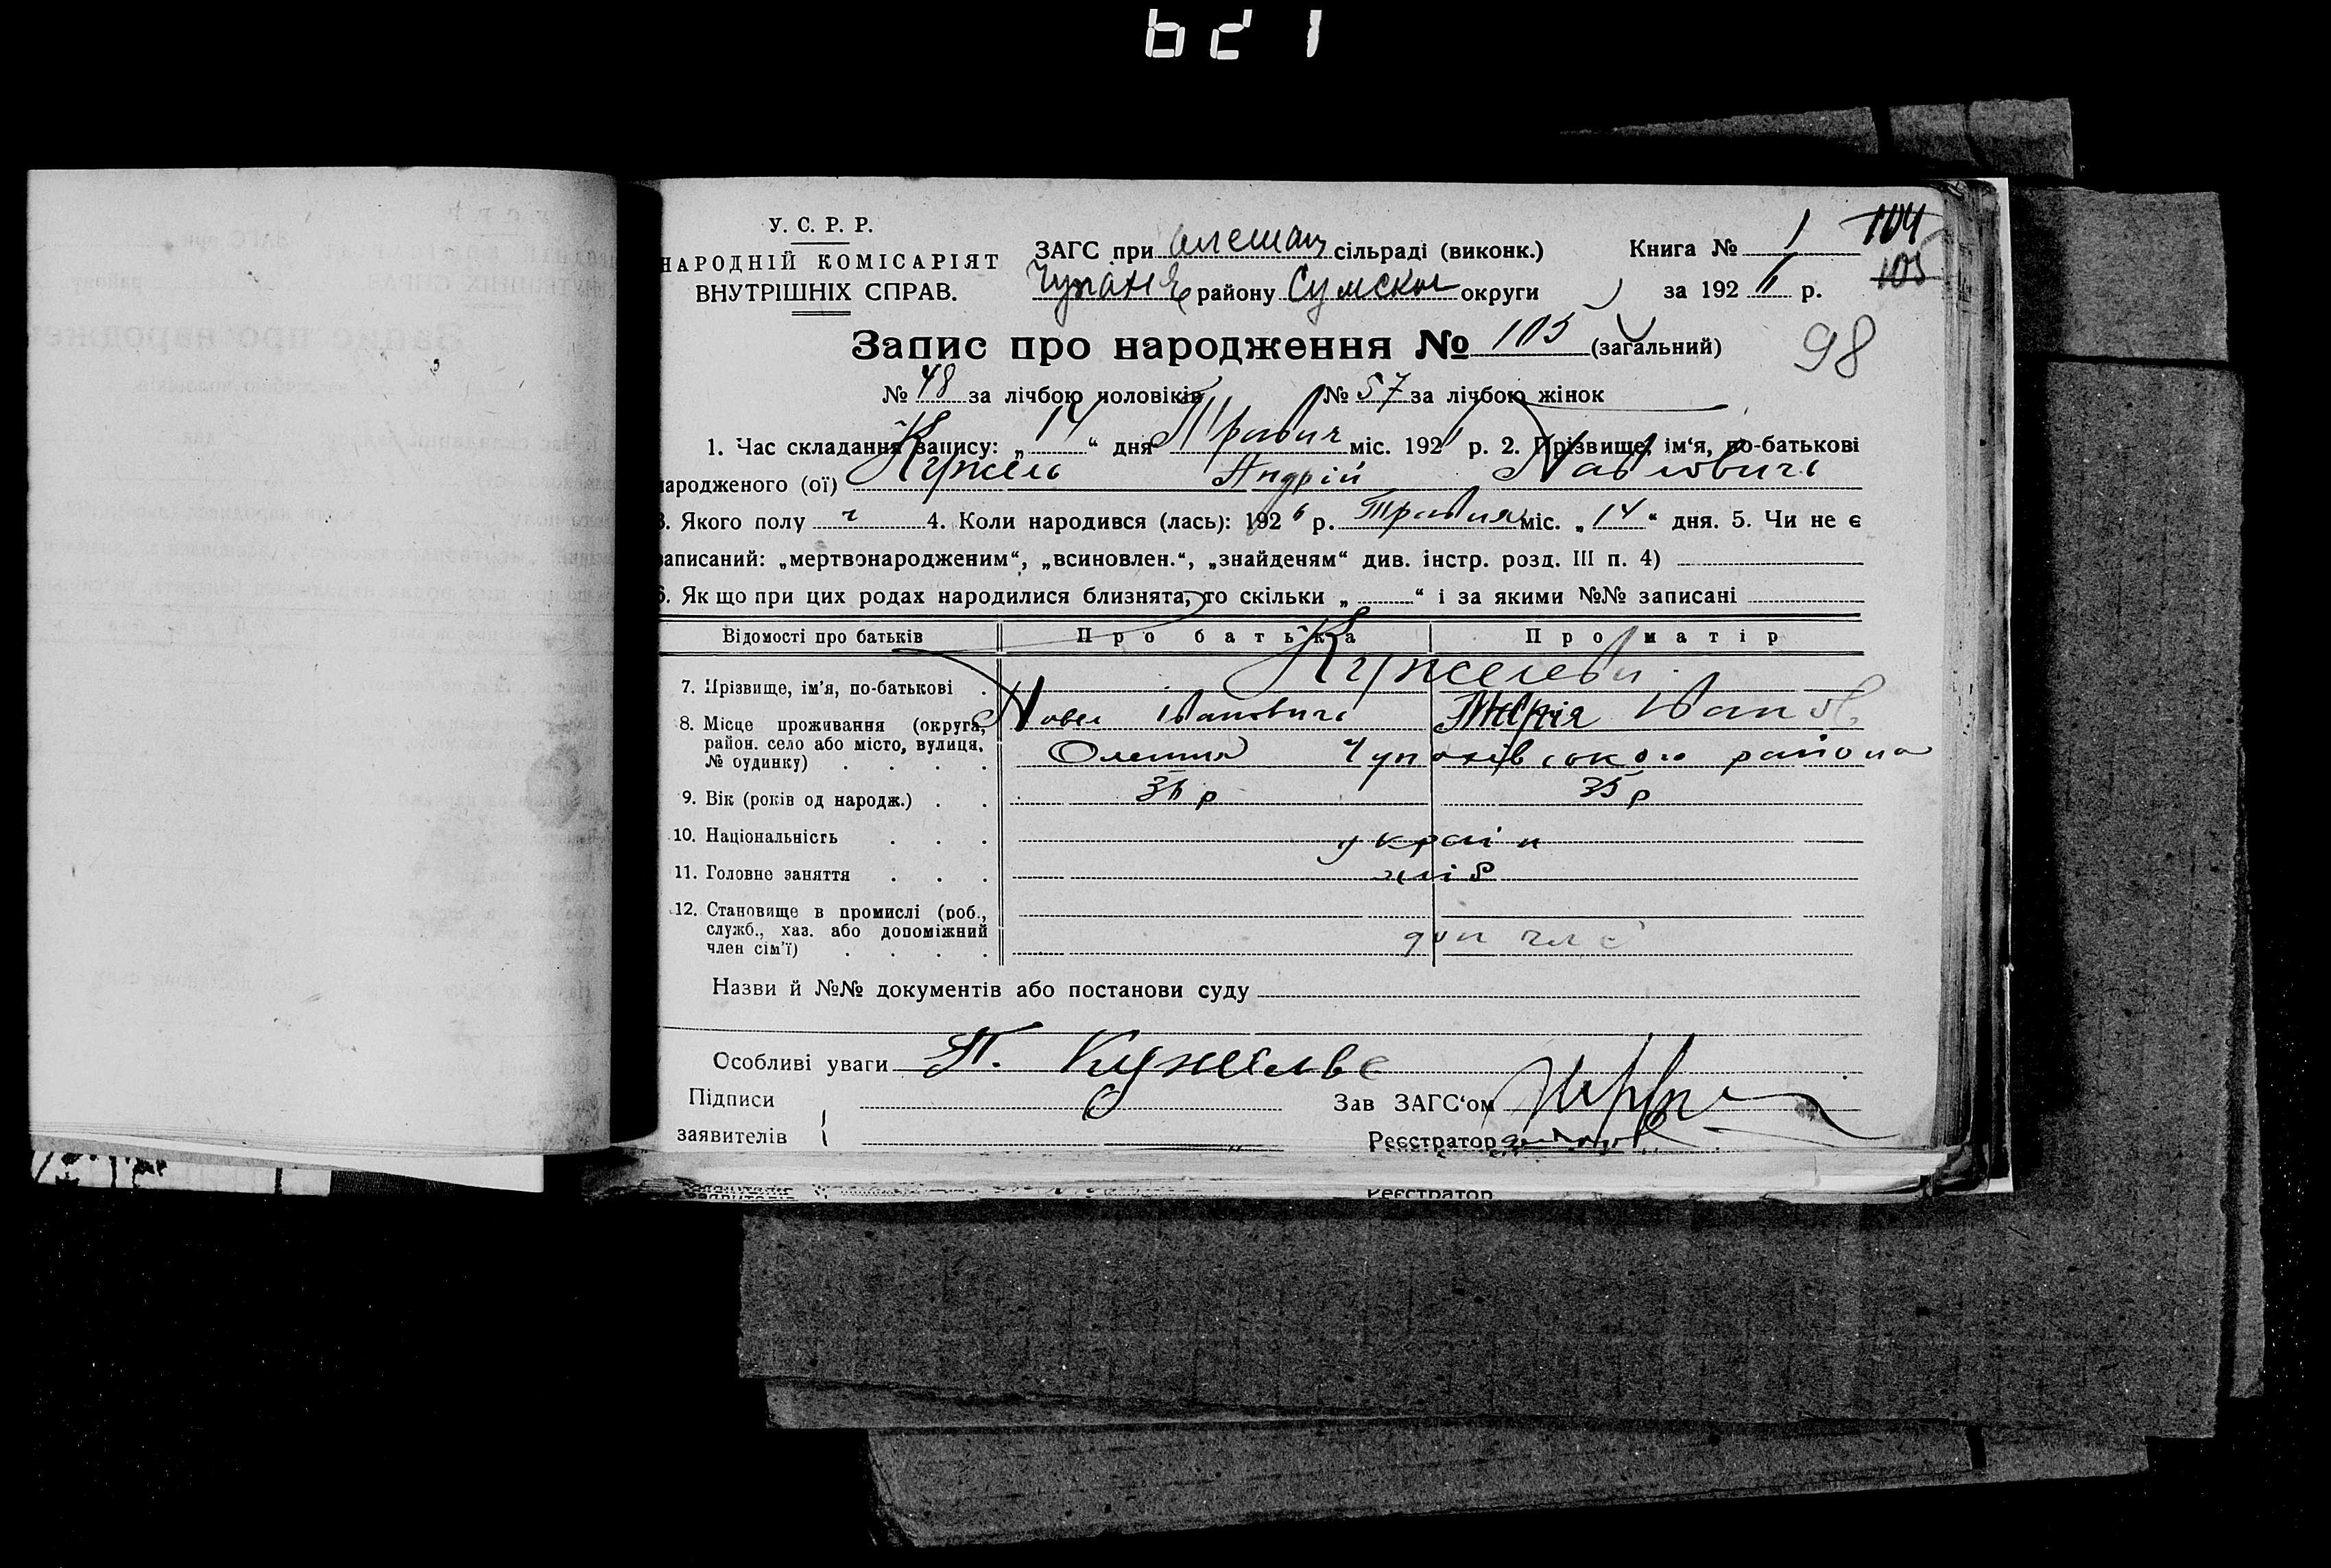 У. С. Р. Р.
НАРОДНІЙ КОМІСАРІЯТ
ВНУТРІШНІХ СПРАВ.
ЗАГС при сільраді (виконк.)
району Сумскои округи
Книга № 1 104
за 192 6 р. 105
Запис про народження № 105 (загальний)
98
№ 48 за лічбою чоловіків № 57 за лічбою жінок
1. Час складання запису: „ 14 “ дня Травня міс. 192 р. 2. Прізвище, ім‘я, по-батькові
народженого (ої) Кужель Андрій Павловичь
3. Якого полу ч 4. Коли народився (лась): 192 6 р. Травня міс. „ 14 “ дня. 5. Чи не є
записаний: „мертвонародженим“, „всиновлен.“, „знайденям“ див. інстр. розд. III п. 4)
6. Якщо при цих родах народилися близнята, то скільки „ “ і за якими №№ записані
Відомості про батьків Про батька Про матір
7. Прізвище, ім‘я, по-батькові . Кужелеви
Павел Ивановичь Марія Иванов
8. Місце проживання (округа,
район. село або місто, вулиця,
№ будинку) . . . . Олешня Чупахівського района
9. Вік (років од народж.) . . 36 р 35 р
10. Національність . . . україн
11. Головне заняття . . . хліб
12. Становище в промислі (роб.,
служб., хаз. або допоміжний
член сім‘ї) . . . . доп чл с
Назви й №№ документів або постанови суду
Особливі уваги П. Кужель
Підписи Зав ЗАГС‘ом
заявителів { Реєстратор
Реєстратор